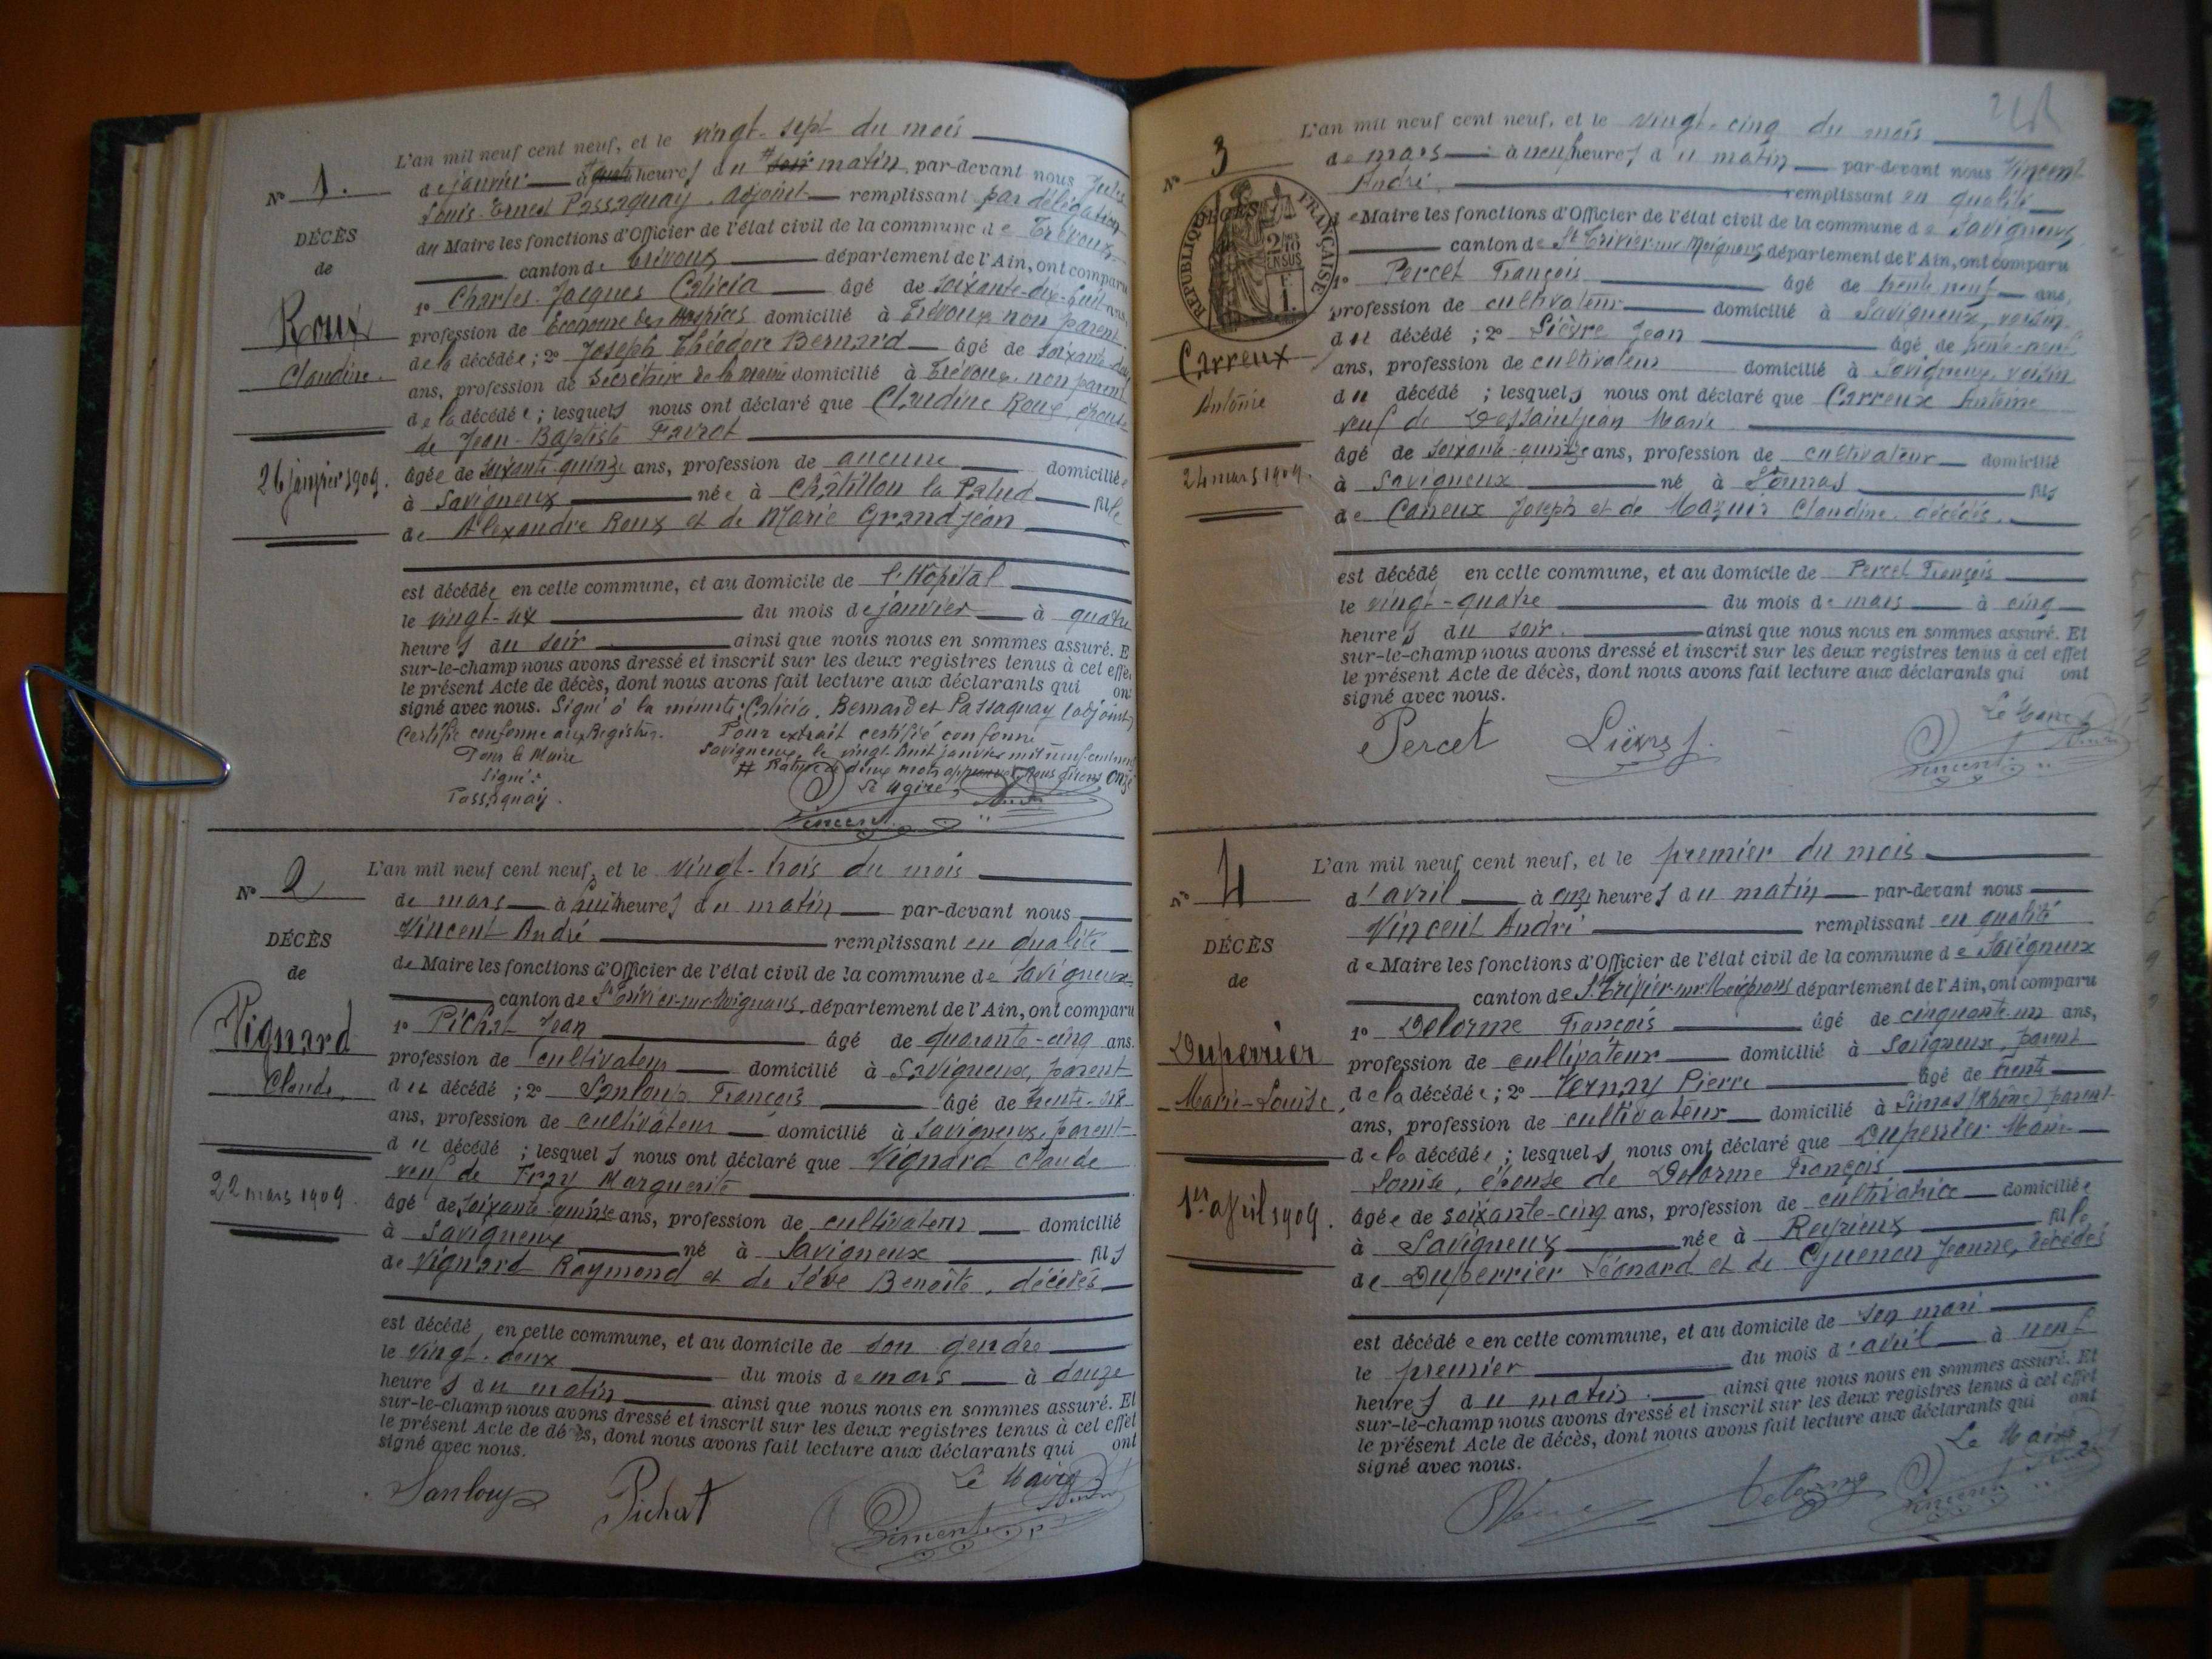 N° 1.
DÉCÈS
de
Roux
Claudine.
26 janvier 1909.
L'an mil neuf cent neuf, et le vingt-sept du mois
de janvier à heures du # soir matin, par-devant nous Jules
Louis-Ernest Passaquay, adjoint remplissant par délégation
du Maire les fonctions d'Officier de l'état civil de la commune de Trévoux
canton de Trévoux département de l'Ain, ont comparu
1° Charles-Jacques Calicia âgé de soixante-dix-huit ans,
profession de Econome des Hospices domicilié à Trévoux non parent
de la décédée; 2° Joseph Théodore Bernard âgé de soixante
ans, profession de Secrétaire de la mairie domicilié à Trévoux, non parent
de la décédée; lesquels nous ont déclaré que Claudine Roux, épouse
de Jean-Baptiste Favrot
âgée de soixante-quinze ans, profession de aucune domiciliée
à Savigneux née à Châtillon la Palud fille
de Alexandre Roux et de Marie Grandjean
est décédée en cette commune, et au domicile de l'Hôpital
le vingt-six du mois de janvier à quatre
heures du soir ainsi que nous nous en sommes assuré. E
sur-le-champ nous avons dressé et inscrit sur les deux registres tenus à cet effe
le présent Acte de décès, dont nous avons fait lecture aux déclarants qui on
signé avec nous. Signé à la minute: Calicia, Bernard et Passaquay (adjoint)
Certifié conforme aux Registres.
Pour le Maire
Signé:
Passaquay.
Pour extrait certifié conforme
Savigneux, le vingt huit janvier mil neuf cent neuf
# Rature de deux mots approuvée, nous disons onze
Le Maire,
Vincent André
N° 2
DÉCÈS
de
Vignard
Claude,
22 mars 1909.
L'an mil neuf cent neuf, et le vingt-trois du mois
de mars à huit heures du matin par-devant nous
Vincent André remplissant en qualité
de Maire les fonctions d'Officier de l'état civil de la commune de Savigneux
canton de St Trivier-sur-Moignans, département de l'Ain, ont comparu
1° Pichat Jean âgé de quarante-cinq ans.
profession de cultivateur domicilié à Savigneux, parent
du décédé; 2° Sanloup François âgé de trente-six
ans, profession de cultivateur domicilié à Savigneux, parent
du décédé; lesquels nous ont déclaré que Vignard Claude
veuf de Fray Marguerite
âgé de soixante-quinze ans, profession de cultivateur domicilié
à Savigneux né à Savigneux fils
de Vignard Raymond et de Sève Benoîte, décédés
est décédé en cette commune, et au domicile de son gendre
le vingt-deux du mois de mars à douze
heures du matin ainsi que nous nous en sommes assuré. Et
sur-le-champ nous avons dressé et inscrit sur les deux registres tenus à cet effet
le présent Acte de décès, dont nous avons fait lecture aux déclarants qui ont
signé avec nous.
Sanloup Pichat
Le Maire
Vincent André
N° 3
DÉCÈS
RÉPUBLIQUE FRANÇAISE
Carreux
Antoine
24 mars 1909.
L'an mil neuf cent neuf, et le vingt-cinq du mois
de mars à neuf heures du matin par-devant nous Vincent
André. remplissant en qualité
de Maire les fonctions d'Officier de l'état civil de la commune de Savigneux
canton de St Trivier-sur-Moignans, département de l'Ain, ont comparu
1° Percet François âgé de trente neuf ans,
profession de cultivateur domicilié à Savigneux, voisin
du décédé; 2° Lièvre Jean âgé de trente-neuf
ans, profession de cultivateur domicilié à Savigneux, voisin
du décédé; lesquels nous ont déclaré que Carreux Antoine
veuf de Dessaintjean Marie
âgé de soixante-quinze ans, profession de cultivateur domicilié
à Savigneux né à fils
de Carreux Joseph et de Mazuir Claudine, décédés.
est décédé en cette commune, et au domicile de Percet François
le vingt-quatre du mois de mars à cinq
heures du soir. ainsi que nous nous en sommes assuré. Et
sur-le-champ nous avons dressé et inscrit sur les deux registres tenus à cet effet
le présent Acte de décès, dont nous avons fait lecture aux déclarants qui ont
signé avec nous.
Percet Lièvre J.
Le Maire
Vincent André
N° 4
DÉCÈS
de
Duperrier
Marie-Louise,
1er avril 1909.
L'an mil neuf cent neuf, et le premier du mois
d'avril à onze heures du matin par-devant nous
Vincent André remplissant en qualité
de Maire les fonctions d'Officier de l'état civil de la commune de Savigneux
canton de St Trivier-sur-Moignans département de l'Ain, ont comparu
1° Delorme François âgé de cinquante-un ans,
profession de cultivateur domicilié à Savigneux, parent
de la décédée; 2° Vernay Pierre âgé de trente
ans, profession de cultivateur domicilié à Limas (Rhône) parent
de la décédée; lesquels nous ont déclaré que Duperrier Marie
Louise, épouse de Delorme François
âgée de soixante-cinq ans, profession de cultivatrice domiciliée
à Savigneux née à Reyrieux fille
de Duperrier Léonard et de Jeanne, décédés
est décédée en cette commune, et au domicile de son mari
le premier du mois d'avril à neuf
heures du matin. ainsi que nous nous en sommes assuré. Et
sur-le-champ nous avons dressé et inscrit sur les deux registres tenus à cet effet
le présent Acte de décès, dont nous avons fait lecture aux déclarants qui ont
signé avec nous.
Delorme
Le Maire
Vincent André